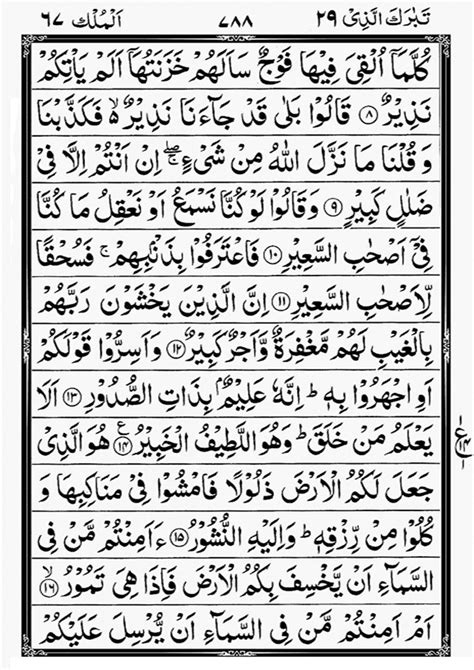 تَبٰرَكَ الَّذِیْ ۲۹ ۷۸۸ اَلْمُلْك ۶۷
كُلَّمَاۤ اُلْقِیَ فِیْهَا فَوْجٌ سَاَلَهُمْ خَزَنَتُهَاۤ اَلَمْ یَاْتِكُمْ
نَذِیْرٌ ۝۸ قَالُوْا بَلٰی قَدْ جَآءَنَا نَذِیْرٌ ۙ۬ فَكَذَّبْنَا
وَ قُلْنَا مَا نَزَّلَ اللّٰهُ مِنْ شَیْءٍ ۖۚ اِنْ اَنْتُمْ اِلَّا فِیْ
ضَلٰلٍ كَبِیْرٍ ۝۹ وَقَالُوْا لَوْ كُنَّا نَسْمَعُ اَوْ نَعْقِلُ مَا كُنَّا
فِیْۤ اَصْحٰبِ السَّعِیْرِ ۝۱۰ فَاعْتَرَفُوْا بِذَنْۢبِهِمْ ۚ فَسُحْقًا
لِّاَصْحٰبِ السَّعِیْرِ ۝۱۱ اِنَّ الَّذِیْنَ یَخْشَوْنَ رَبَّهُمْ
بِالْغَیْبِ لَهُمْ مَّغْفِرَةٌ وَّاَجْرٌ كَبِیْرٌ ۝۱۲ وَاَسِرُّوْا قَوْلَكُمْ
اَوِ اجْهَرُوْا بِهٖ ؕ اِنَّهٗ عَلِیْمٌۢ بِذَاتِ الصُّدُوْرِ ۝۱۳ اَلَا
یَعْلَمُ مَنْ خَلَقَ ؕ وَهُوَ اللَّطِیْفُ الْخَبِیْرُ ۝۱۴ ع هُوَ الَّذِیْ
ع ۱۴ ۱
جَعَلَ لَكُمُ الْاَرْضَ ذَلُوْلًا فَامْشُوْا فِیْ مَنَاكِبِهَا وَ
كُلُوْا مِنْ رِّزْقِهٖ ؕ وَاِلَیْهِ النُّشُوْرُ ۝۱۵ ءَاَمِنْتُمْ مَّنْ فِی
السَّمَآءِ اَنْ یَّخْسِفَ بِكُمُ الْاَرْضَ فَاِذَا هِیَ تَمُوْرُ ۙ۝۱۶
اَمْ اَمِنْتُمْ مَّنْ فِی السَّمَآءِ اَنْ یُّرْسِلَ عَلَیْكُمْ